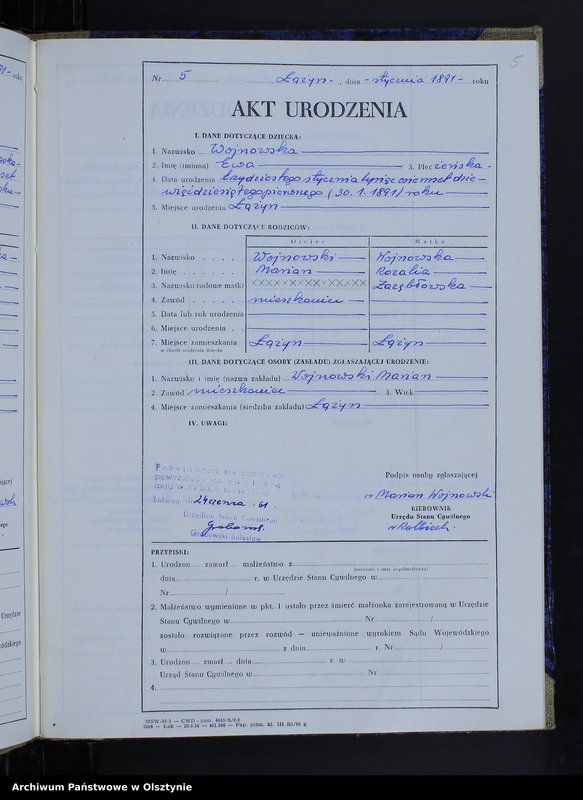 5
Nr 5 Łążyn , dnia - stycznia 1891 - roku
AKT URODZENIA
I. DANE DOTYCZĄCE DZIECKA:
1. Nazwisko Wojnowska
2. Imię (imiona) Ewa 3. Płeć żeńska -
4. Data urodzenia trzydziestego stycznia tysiąc osiemset dzie-
więćdziesiątego pierwszego (30. 1. 1891) roku
5. Miejsce urodzenia Łążyn
II. DANE DOTYCZĄCE RODZICÓW:
Ojciec Matka
1. Nazwisko Wojnowski Wojnowska
2. Imię Marian Rozalia
3. Nazwisko rodowe matki XXXXXXXXXXXXXX Zarębłowska
4. Zawód mieszkaniec
5. Data lub rok urodzenia
6. Miejsce urodzenia
7. Miejsce zamieszkania Łążyn Łążyn
w chwili urodzenia dziecka
III. DANE DOTYCZĄCE OSOBY (ZAKŁADU) ZGŁASZAJĄCEJ URODZENIE:
1. Nazwisko i imię (nazwa zakładu) Wojnowski Marian
2. Zawód mieszkaniec 3. Wiek
4. Miejsce zamieszkania (siedziba zakładu) Łążyn
IV. UWAGI:
Poświadcza się zgodność
powyższego
aktu w
dnia 24 czerwca 1961 r.
Urzędnik Stanu Cywilnego
Grabowski Bolesław
Podpis osoby zgłaszającej
Marian Wojnowski
KIEROWNIK
Urzędu Stanu Cywilnego
PRZYPISKI:
1. Urodzon zawarł małżeństwo z
(nazwisko i imię współmałżonka)
dnia r. w Urzędzie Stanu Cywilnego w
Nr /
2. Małżeństwo wymienione w pkt. 1 ustało przez śmierć małżonka zarejestrowaną w Urzędzie
Stanu Cywilnego w Nr /
zostało rozwiązane przez rozwód — unieważnione wyrokiem Sądu Wojewódzkiego
w z dnia r. Nr /
3. Urodzon zmarł dnia r. w
Urząd Stanu Cywilnego w Nr
4.
MSW-M-1 — CWD
Archiwum Państwowe w Olsztynie